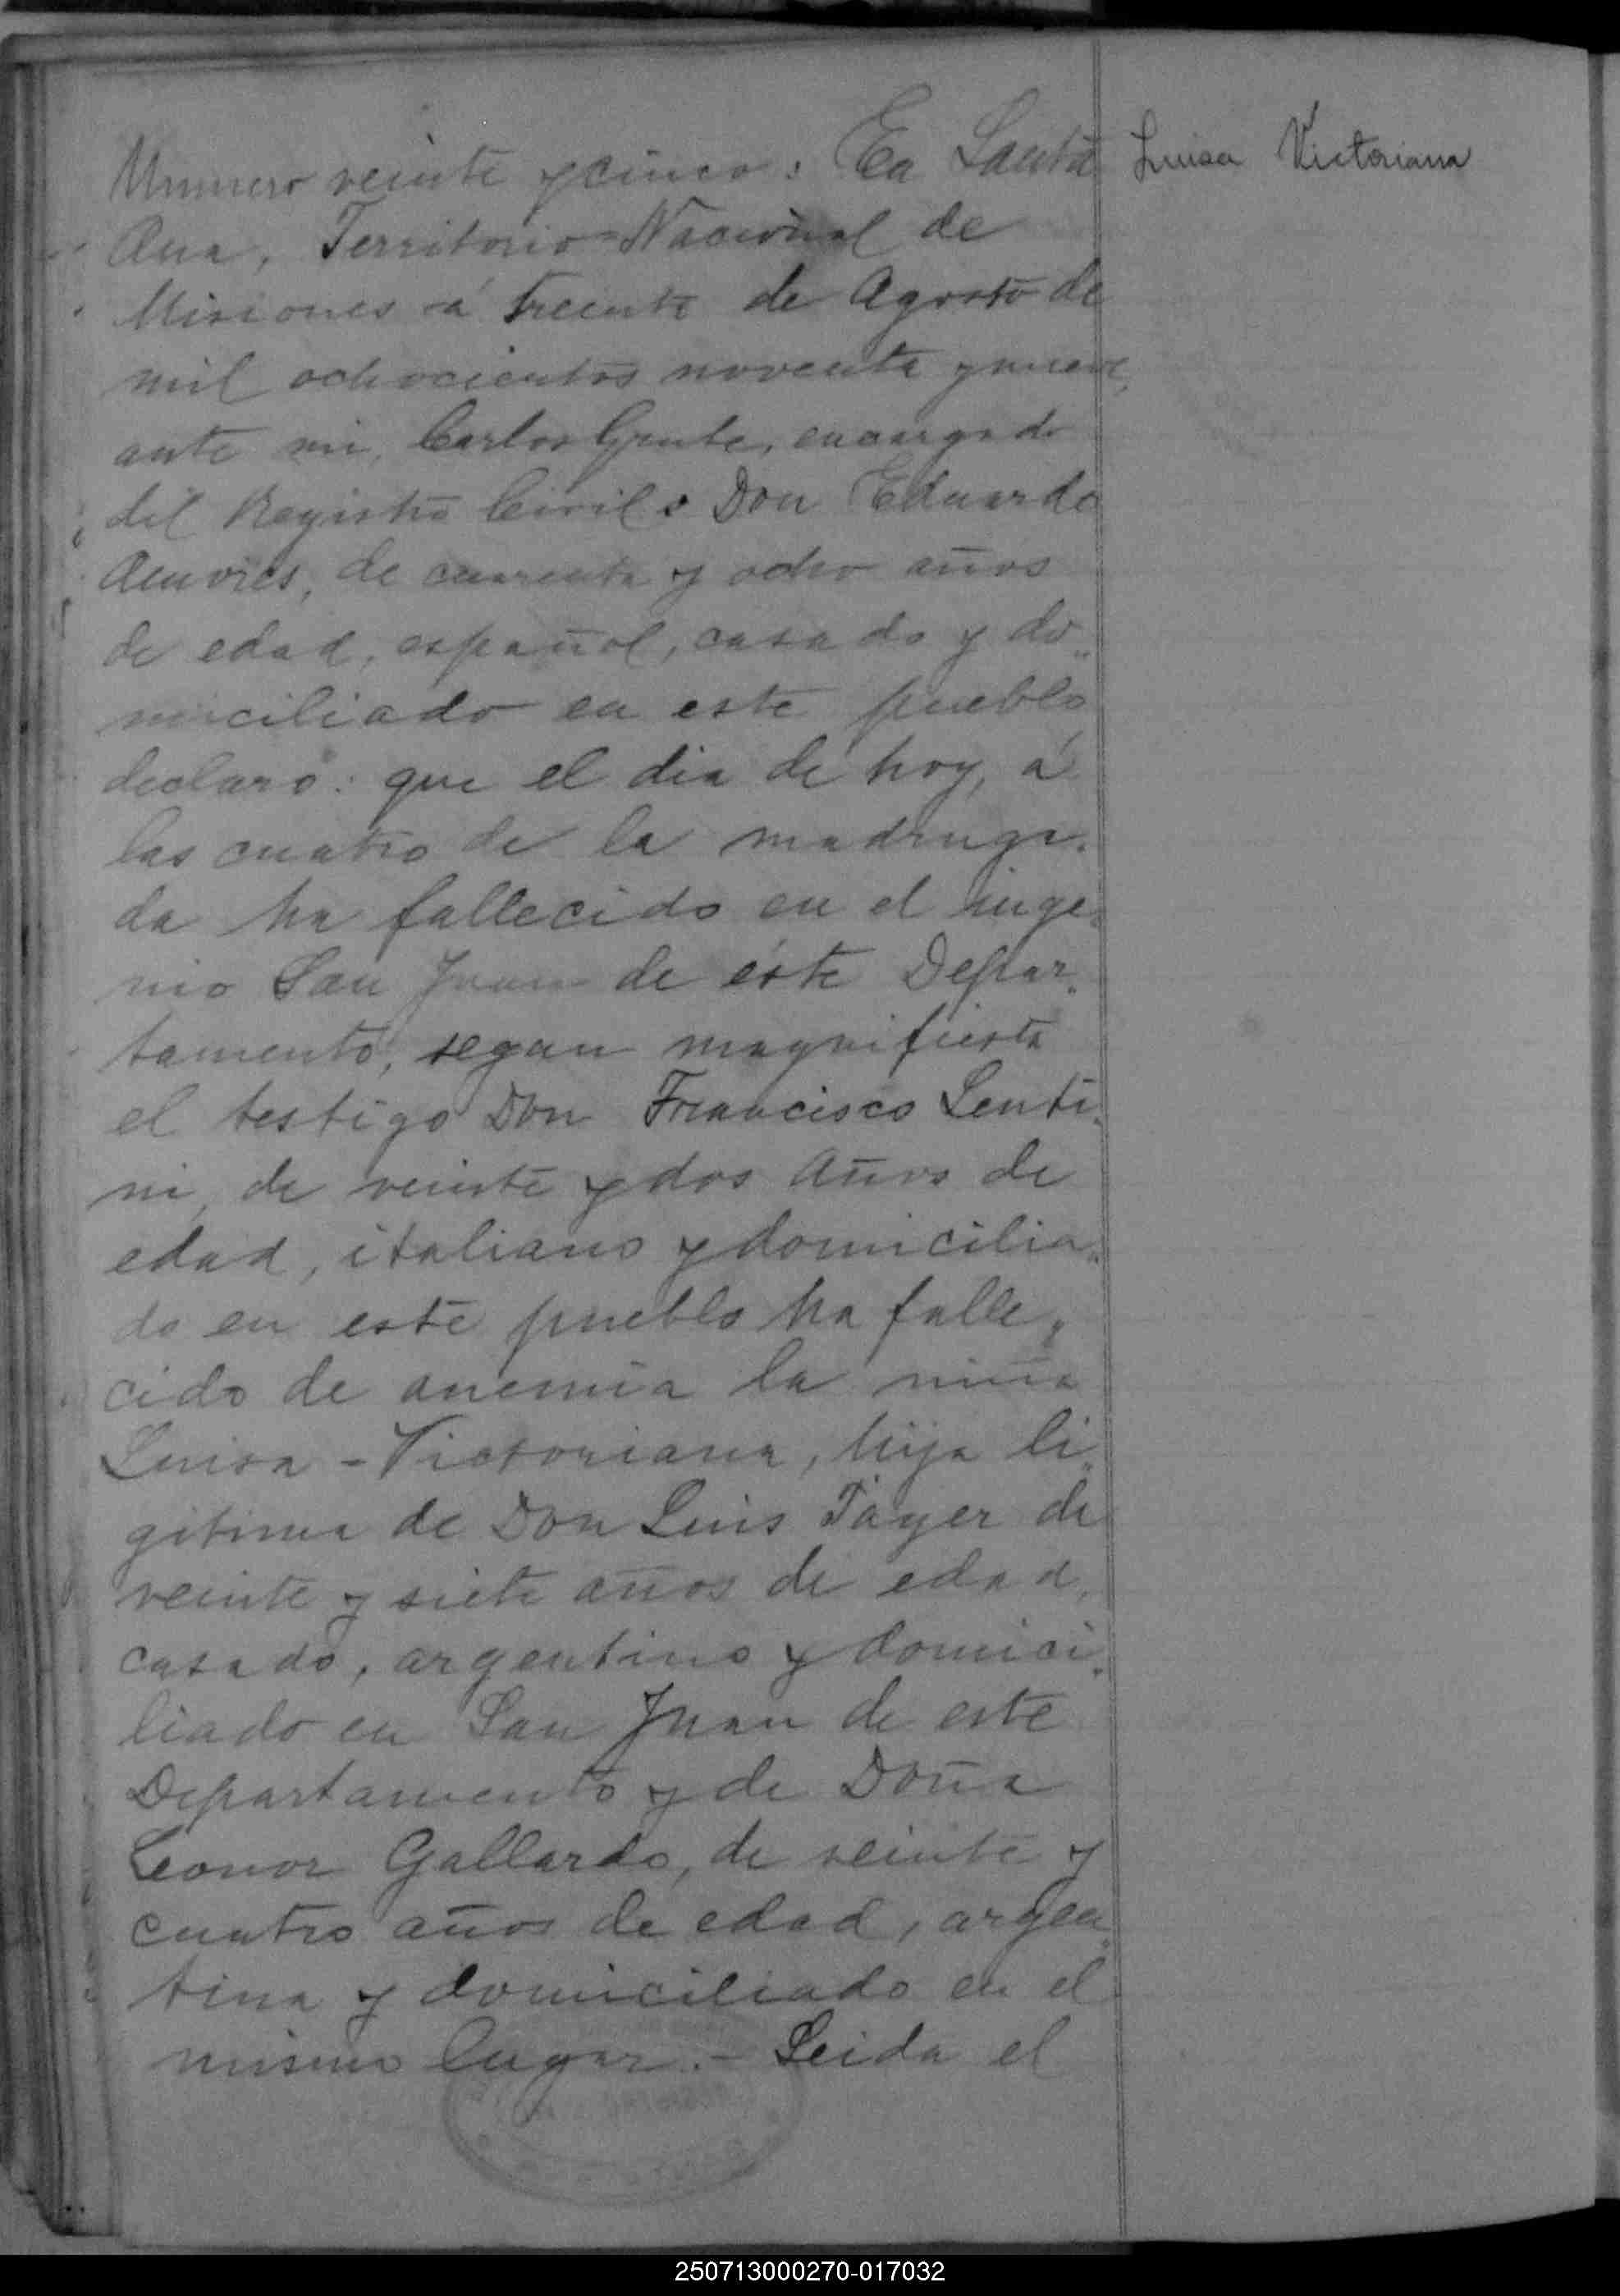 Numero veinte y cinco: En Santa
Ana, Territorio Nacional de
Misiones á treinta de Agosto de
mil ochocientos noventa y nueve,
ante mi, Carlos Grute, encargado
del Registro Civil: Don Eduardo
de cuarenta y ocho años
de edad, español, casado y do"
miciliado en este pueblo
declaró: que el dia de hoy, á
las cuatro de la madruga"
da ha fallecido en el inge"
nio San Juan de éste Depar"
tamento, segun magnifiesta
el testigo Don Francisco Lenti"
ni, de veinte y dos años de
edad, italiano y domicilia"
do en este pueblo ha falle"
cido de anemia la niña
Luisa-Victoriana, hija li"
gitima de Don Luis Tayer de
veinte y siete años de edad,
casado, argentino y domici"
liado en San Juan de este
Departamento y de Doña
Leonor Gallardo, de veinte y
cuatro años de edad, argen"
tina y domiciliado en el
mismo lugar.- Leida el
Luisa Victoriana
250713000270-017032